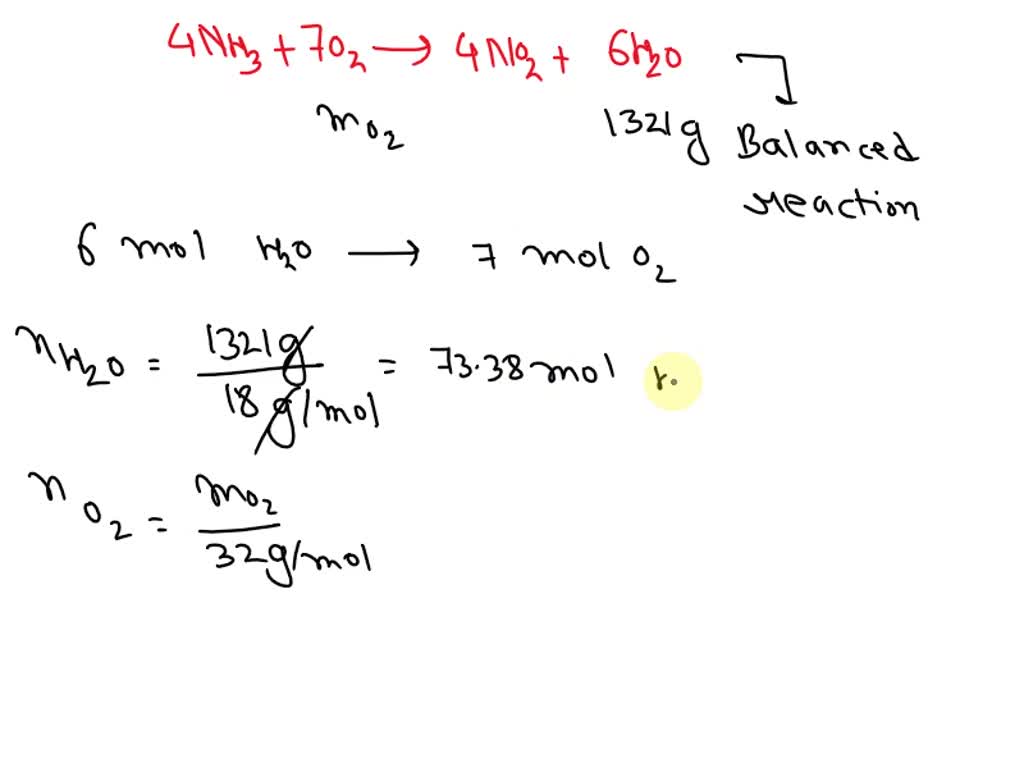 4NH₃ + 7O₂ → 4NO₂ + 6H₂O
mO₂ 1321g Balanced
reaction
6 mol H₂O → 7 mol O₂
nH₂O = 1321g / 18 g/mol = 73.38 mol
nO₂ = mO₂ / 32g/mol